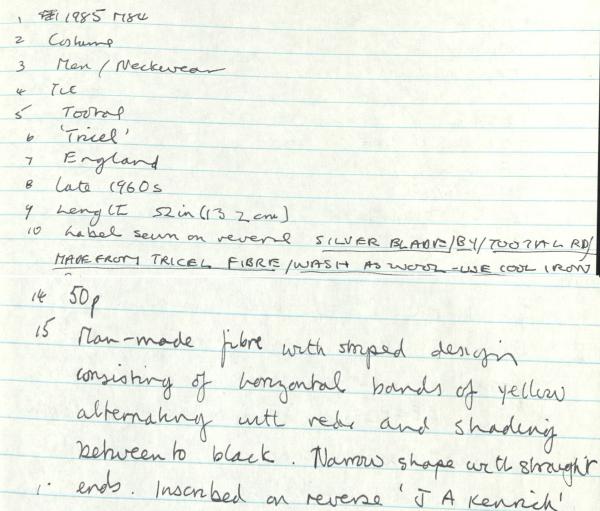 1 1985 M84
2 Costume
3 Men / Neckwear
4 Tie
5 Tootal
6 'Tricel'
7 England
8 Late 1960s
9 Length 52in (132cm)
10 Label sewn on reverse SILVER BLADE/BY/TOOTAL RD/
MADE FROM TRICEL FIBRE/WASH AS WOOL-USE COOL IRON
14 50p
15 Man-made fibre with striped design
consisting of horizontal bands of yellow
alternating with red and shading
between to black. Narrow shape with straight
ends. Inscribed on reverse 'J A Kenrick'